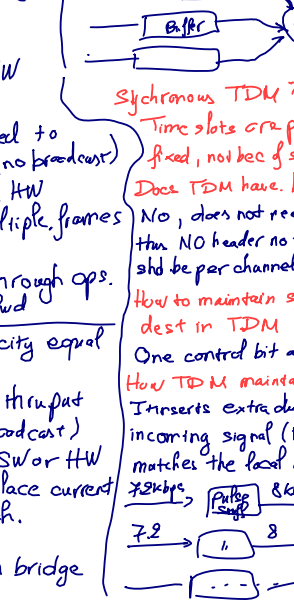 W
ed to
(no broadcast)
HW
ltiple frames
hrough ops.
wd
city equal
thruput
oadcast)
SW or HW
lace current
h.
bridge
Buffer
Sychronous TDM
Time slots are p
fixed, not bec of s
Does TDM have
No, does not re
thus NO header no
shd be per channel
How to maintain s
dest in TDM
One control bit a
How TDM mainta
Inserts extra du
incoming signal (
matches the local
7.2kbps pulse stuff 8k
7.2 " 8